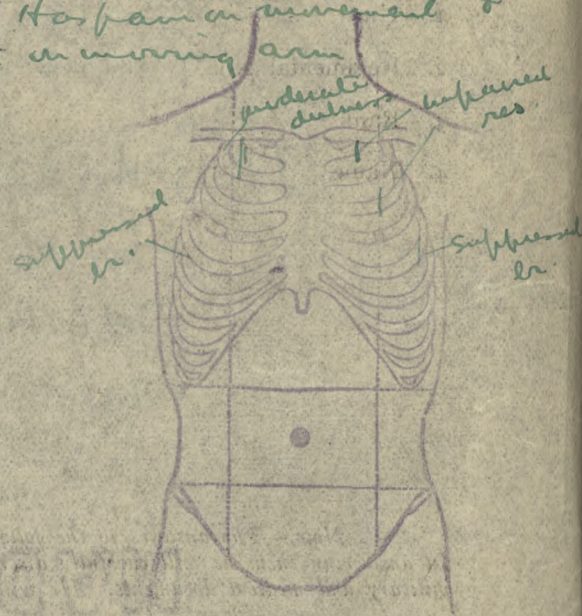 Has pain on movement
on moving arm
moderate
dulness
impaired
res
suppressed
br.
suppressed
br.